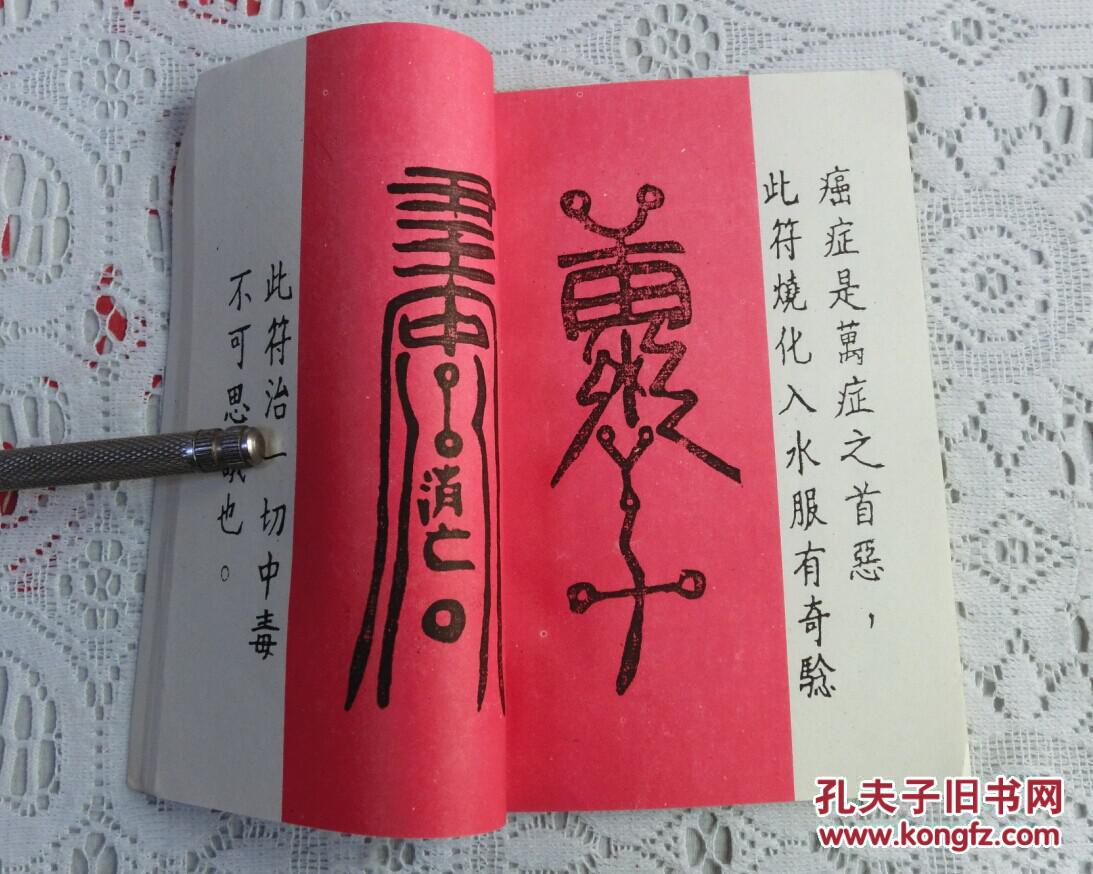 癌症是萬症之首惡，
此符燒化入水服有奇驗
消亡
此符治一切中毒
不可思 也。
孔夫子旧书网
www.kongfz.com